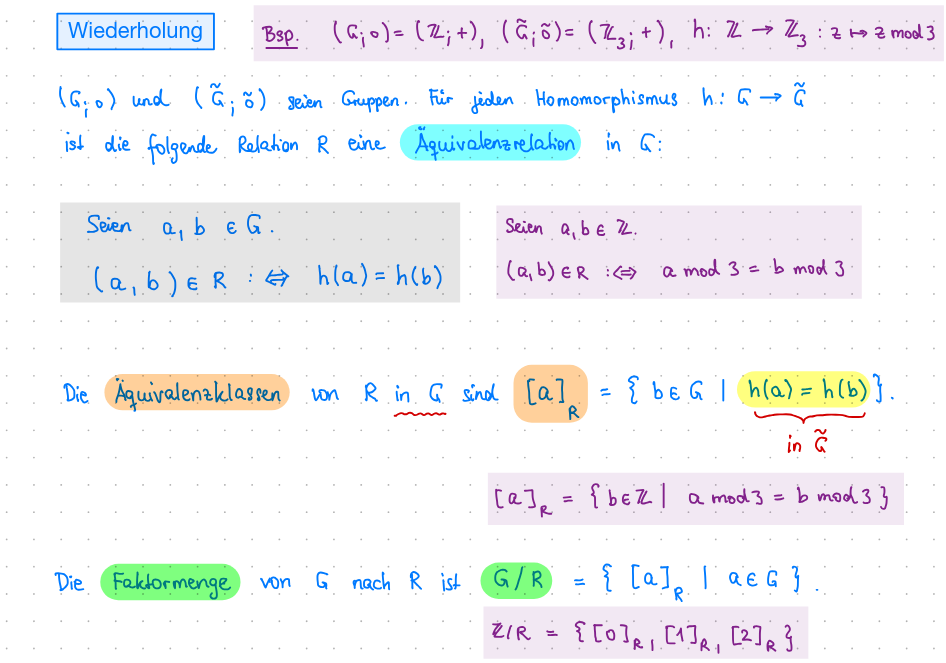 Wiederholung
Bsp. (G;∘) = (ℤ;+), (G̃;∘̃) = (ℤ₃;+), h: ℤ → ℤ₃ : z ↦ z mod 3
(G;∘) und (G̃;∘̃) seien Gruppen. Für jeden Homomorphismus h: G → G̃
ist die folgende Relation R eine Äquivalenzrelation in G:
Seien a, b ∈ G.
(a, b) ∈ R :⇔ h(a) = h(b)
Seien a, b ∈ ℤ.
(a,b) ∈ R :⇔ a mod 3 = b mod 3
Die Äquivalenzklassen von R in G sind [a]_R = { b ∈ G | h(a) = h(b) }.
in G̃
[a]_R = { b ∈ ℤ | a mod 3 = b mod 3 }
Die Faktormenge von G nach R ist G/R = { [a]_R | a ∈ G }.
ℤ/R = { [0]_R, [1]_R, [2]_R }